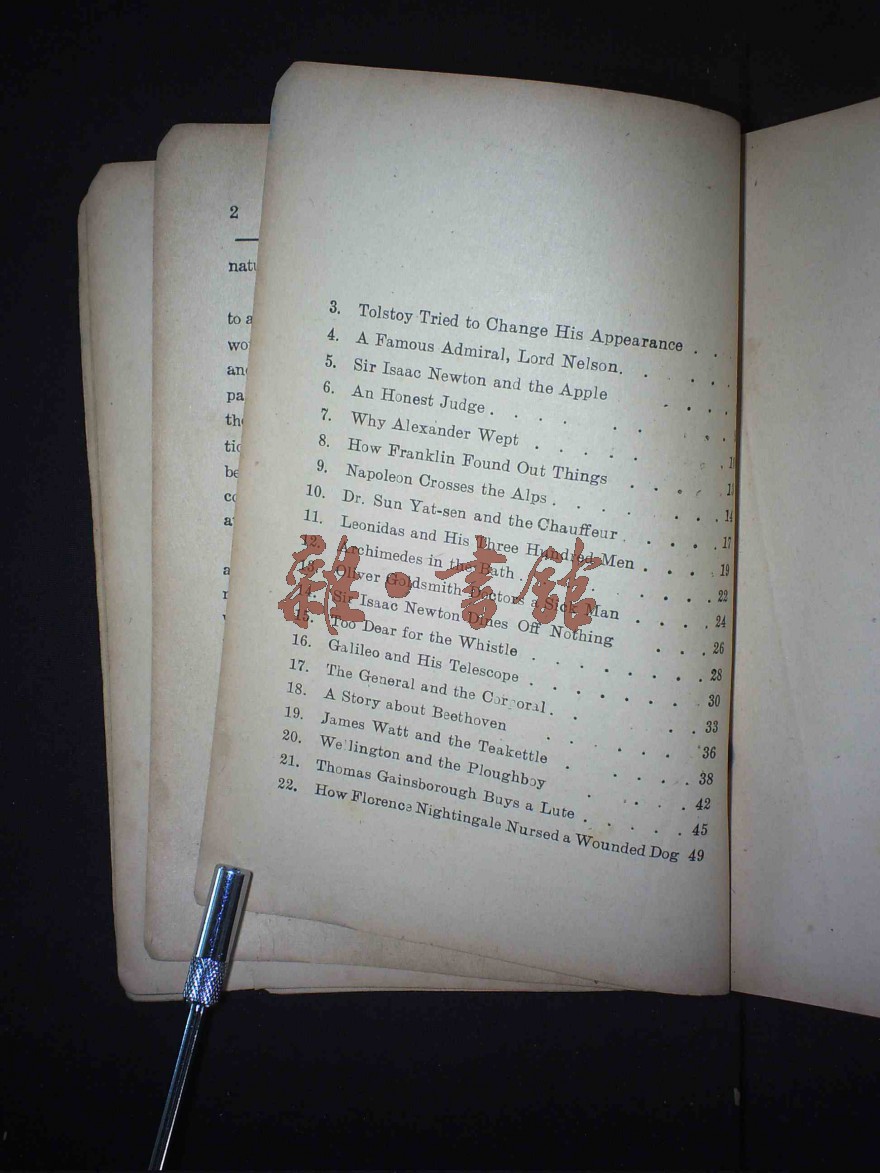 2
to a
3. Tolstoy Tried to Change His Appearance . .
4. A Famous Admiral, Lord Nelson. . . .
5. Sir Isaac Newton and the Apple . . . .
6. An Honest Judge . . . . . . .
7. Why Alexander Wept . . . . . .
8. How Franklin Found Out Things . . . .
9. Napoleon Crosses the Alps . . . . . . 14
10. Dr. Sun Yat-sen and the Chauffeur . . . . 17
11. Leonidas and His Three Hundred Men . . . 19
12. Archimedes in the Bath . . . . . . 22
13. Oliver Goldsmith Doctors a Sick Man . . . . 24
14. Sir Isaac Newton Dines Off Nothing . . . 26
15. Too Dear for the Whistle . . . . . . . 28
16. Galileo and His Telescope . . . . . . . 30
17. The General and the Corporal . . . . . . 33
18. A Story about Beethoven . . . . . 36
19. James Watt and the Teakettle . . . . . 38
20. Wellington and the Ploughboy . . . . 42
21. Thomas Gainsborough Buys a Lute . . . . . 45
22. How Florence Nightingale Nursed a Wounded Dog 49
雜·書館